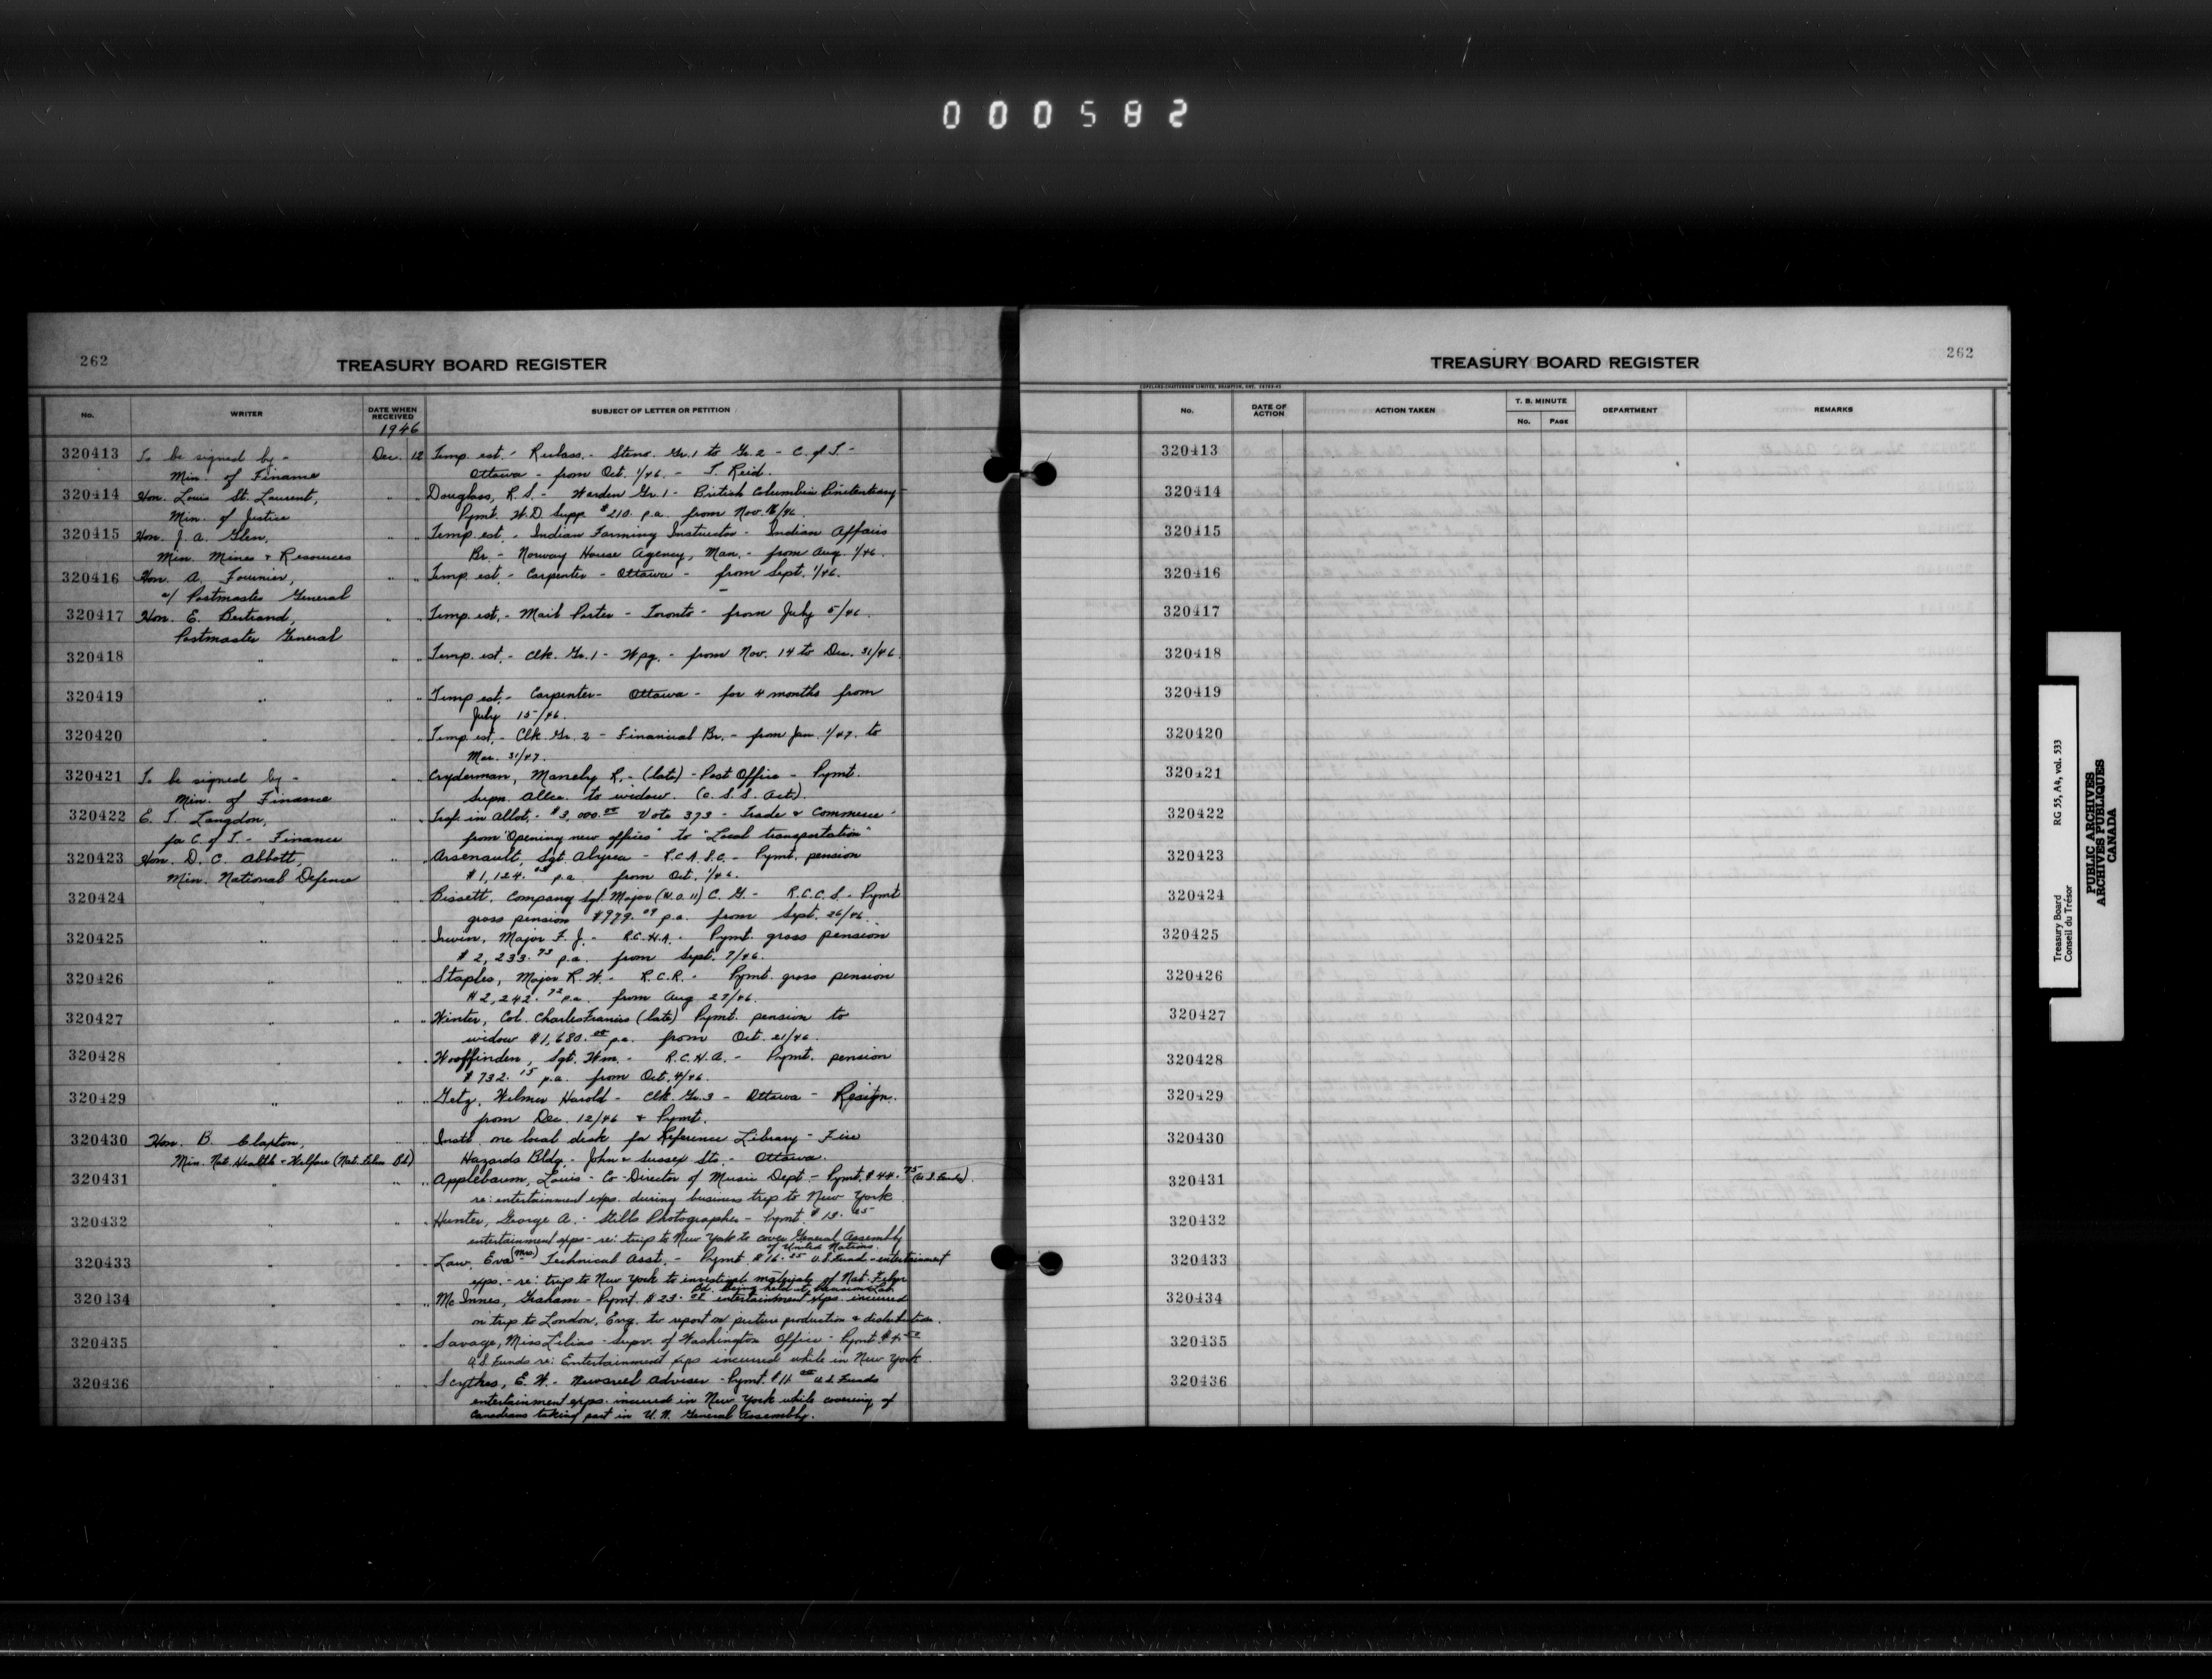 000582
262
TREASURY BOARD REGISTER
No. WRITER DATE WHEN RECEIVED SUBJECT OF LETTER OR PETITION
1946
320413 To be signed by - Dec. 12 Temp. est. - Reclass. - Steno. Gr. 1 to Gr. 2 - C. of T. -
Min. of Finance Ottawa - from Oct. 1/46. - T. Reid.
320414 Hon. Louis St. Laurent, " " Douglass, R. S. - Warden Gr. 1 - British Columbia Penitentiary -
Min. of Justice Pymt. W. D. Supp. $210. p.a. from Nov. 16/46.
320415 Hon. J. A. Glen, " " Temp. est. - Indian Farming Instructor - Indian Affairs
Min. Mines & Resources Br. - Norway House Agency, Man. - from Aug. 1/46.
320416 Hon. A. Fournier, " " Temp. est. - Carpenter - Ottawa - from Sept. 1/46.
a/ Postmaster General
320417 Hon. E. Bertrand, " " Temp. est. - Mail Porter - Toronto - from July 5/46.
Postmaster General
320418 " " " Temp. est. - Clk. Gr. 1 - Wpg. - from Nov. 14 to Dec. 31/46.
320419 " " " Temp. est. - Carpenter - Ottawa - for 4 months from
July 15/46.
320420 " " " Temp. est. - Clk. Gr. 2 - Financial Br. - from Jan. 1/47. to
Mar. 31/47.
320421 To be signed by - " " Cryderman, Maneby R. - (late) - Post Office - Pymt.
Min. of Finance Supn. Allce. to widow. (C. S. S. Act).
320422 E. T. Langdon, " " Trsf. in Allot. - $3,000.00 Vote 373 - Trade & Commerce -
for C. of T. - Finance from "Opening new offices" to "Local transportation"
320423 Hon. D. C. Abbott, " " Arsenault, Sgt. - R.C.A.S.C. - Pymt. pension
Min. National Defence $1,124. p.a. from Oct. 1/46.
320424 " " " Bissett, Company Sgt. Major (W.O. 11) C. G. - R.C.C.S. - Pymt
gross pension $979.09 p.a. from Sept. 26/46.
320425 " " " Irwin, Major F. J. - R.C.H.A. - Pymt. gross pension
$2,233.73 p.a. from Sept. 7/46.
320426 " " " Staples, Major R. W. - R.C.R. - Pymt. gross pension
$2,242.72 p.a. from Aug 27/46.
320427 " " " Winter, Col. Charles Francis (late) Pymt. pension to
widow $1,680.00 p.a. from Oct. 21/46.
320428 " " " Wooffinden, Sgt. Wm. - R.C.H.A. - Pymt. pension
$732.15 p.a. from Oct. 4/46.
320429 " " " Getz, Wilmer Harold - Clk. Gr. 3 - Ottawa - Resign.
from Dec. 12/46 & Pymt.
320430 Hon. B. Claxton, " " Instl. one local desk for Reference Library - Fire
Min. Nat. Health & Welfare (Nat. Film Bd) Hazards Bldg. - John & Sussex Sts. - Ottawa.
320431 " " " Applebaum, Louis - Co-Director of Music Dept. - Pymt. $44.75 (U.S. Funds).
re: entertainment exps. during business trip to New York
320432 " " " Hunter, George A. - Stills Photographer - Pymt. $13.65
entertainment exps - re: trip to New York to cover General Assembly
of United Nations.
320433 " " " Law, Eva (Mrs.) Technical Asst. - Pymt $16.25 U.S. Fund - entertainment
exps. - re: trip to New York to investigate materials of Nat. Film
Bd. being held at
320434 " " " McInnes, Graham - Pymt. $23. entertainment exps. incurred
on trip to London, Eng. to report on picture production & distribution.
320435 " " " Savage, Miss Lilias - Supv. of Washington Office - Pymt $4.
U.S. Funds re: Entertainment exps incurred while in New York.
320436 " " " Scythes, E. W. - Newsreel Adviser - Pymt. $11.00 U.S. Funds
entertainment exps. incurred in New York while covering of
Canadians taking part in U.N. General Assembly.
262
TREASURY BOARD REGISTER
COPELAND-CHATTERSON LIMITED, BRAMPTON, ONT.
No. DATE OF ACTION ACTION TAKEN T. B. MINUTE No. PAGE DEPARTMENT REMARKS
320413
320414
320415
320416
320417
320418
320419
320420
320421
320422
320423
320424
320425
320426
320427
320428
320429
320430
320431
320432
320433
320434
320435
320436
Treasury Board RG 55, A4, vol. 533
Conseil du Trésor
PUBLIC ARCHIVES
ARCHIVES PUBLIQUES
CANADA